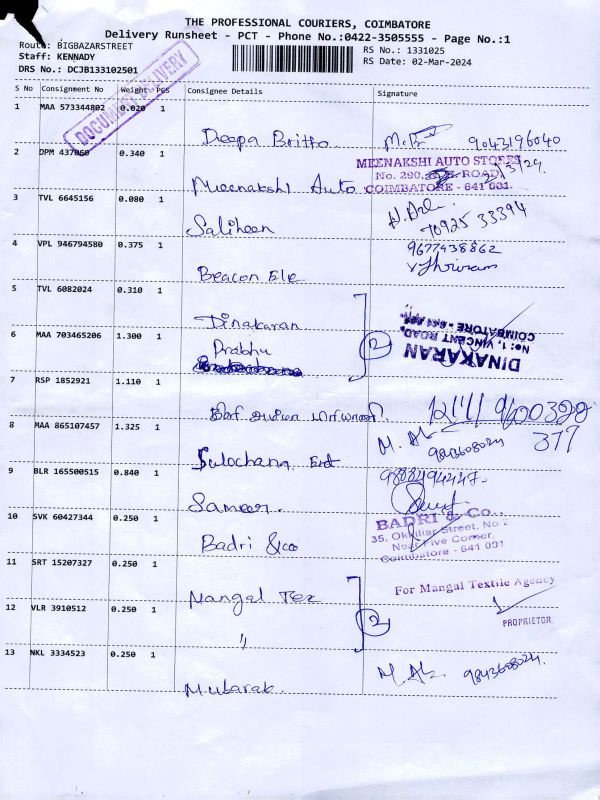 THE PROFESSIONAL COURIERS, COIMBATORE
Delivery Runsheet - PCT - Phone No.:0422-3505555 - Page No.:1
Route: BIGBAZARSTREET
Staff: KENNADY
DRS No.: DCJB133102501
RS No.: 1331025
RS Date: 02-Mar-2024
DOCUMENT DELIVERY
S No Consignment No Weight PCS Consignee Details Signature
1 MAA 573344802 0.020 1 Deepa Britto 9043196040
2 DPM 437060 0.340 1 Meenakshi Auto
MEENAKSHI AUTO STORES
No. 290, ROAD,
COIMBATORE - 641 001.
3 TVL 6645156 0.080 1 Saliheen
70925 33394
4 VPL 946794580 0.375 1 Beacon Ele
9677438862
5 TVL 6082024 0.310 1 Dinakaran
DINAKARAN
No: 1, VINCENT ROAD,
COIMBATORE - 641 001.
2
6 MAA 703465206 1.300 1 Prabhu
7 RSP 1852921 1.110 1
8 MAA 865107457 1.325 1 Sulochana Ent
9843608024
377
9 BLR 165500515 0.840 1 Sameer.
10 SVK 60427344 0.250 1 Badri & co
BADRI & Co.,
35, Okkiliar Street, No 2
Near Five Corner,
Coimbatore - 641 001
11 SRT 15207327 0.250 1 Mangal Tex
For Mangal Textile Agency
PROPRIETOR.
2
12 VLR 3910512 0.250 1 "
13 NKL 3334523 0.250 1 Mubarak.
9843608024.